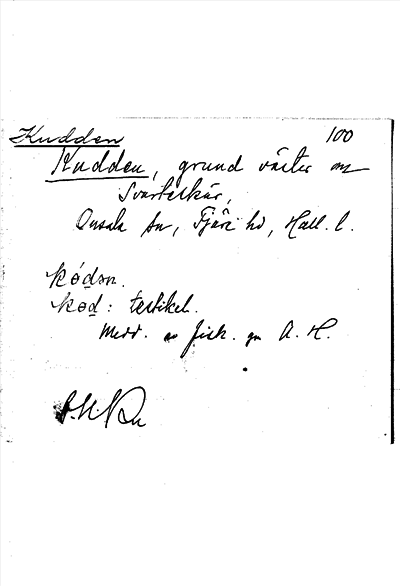 Kudden 100
Kudden, grund väster om
Svarteskär,
Onsala sn, Fjäre hd, Hall. l.
kódən.
kod: testikel.
Medd. av fisk. gm A. H.